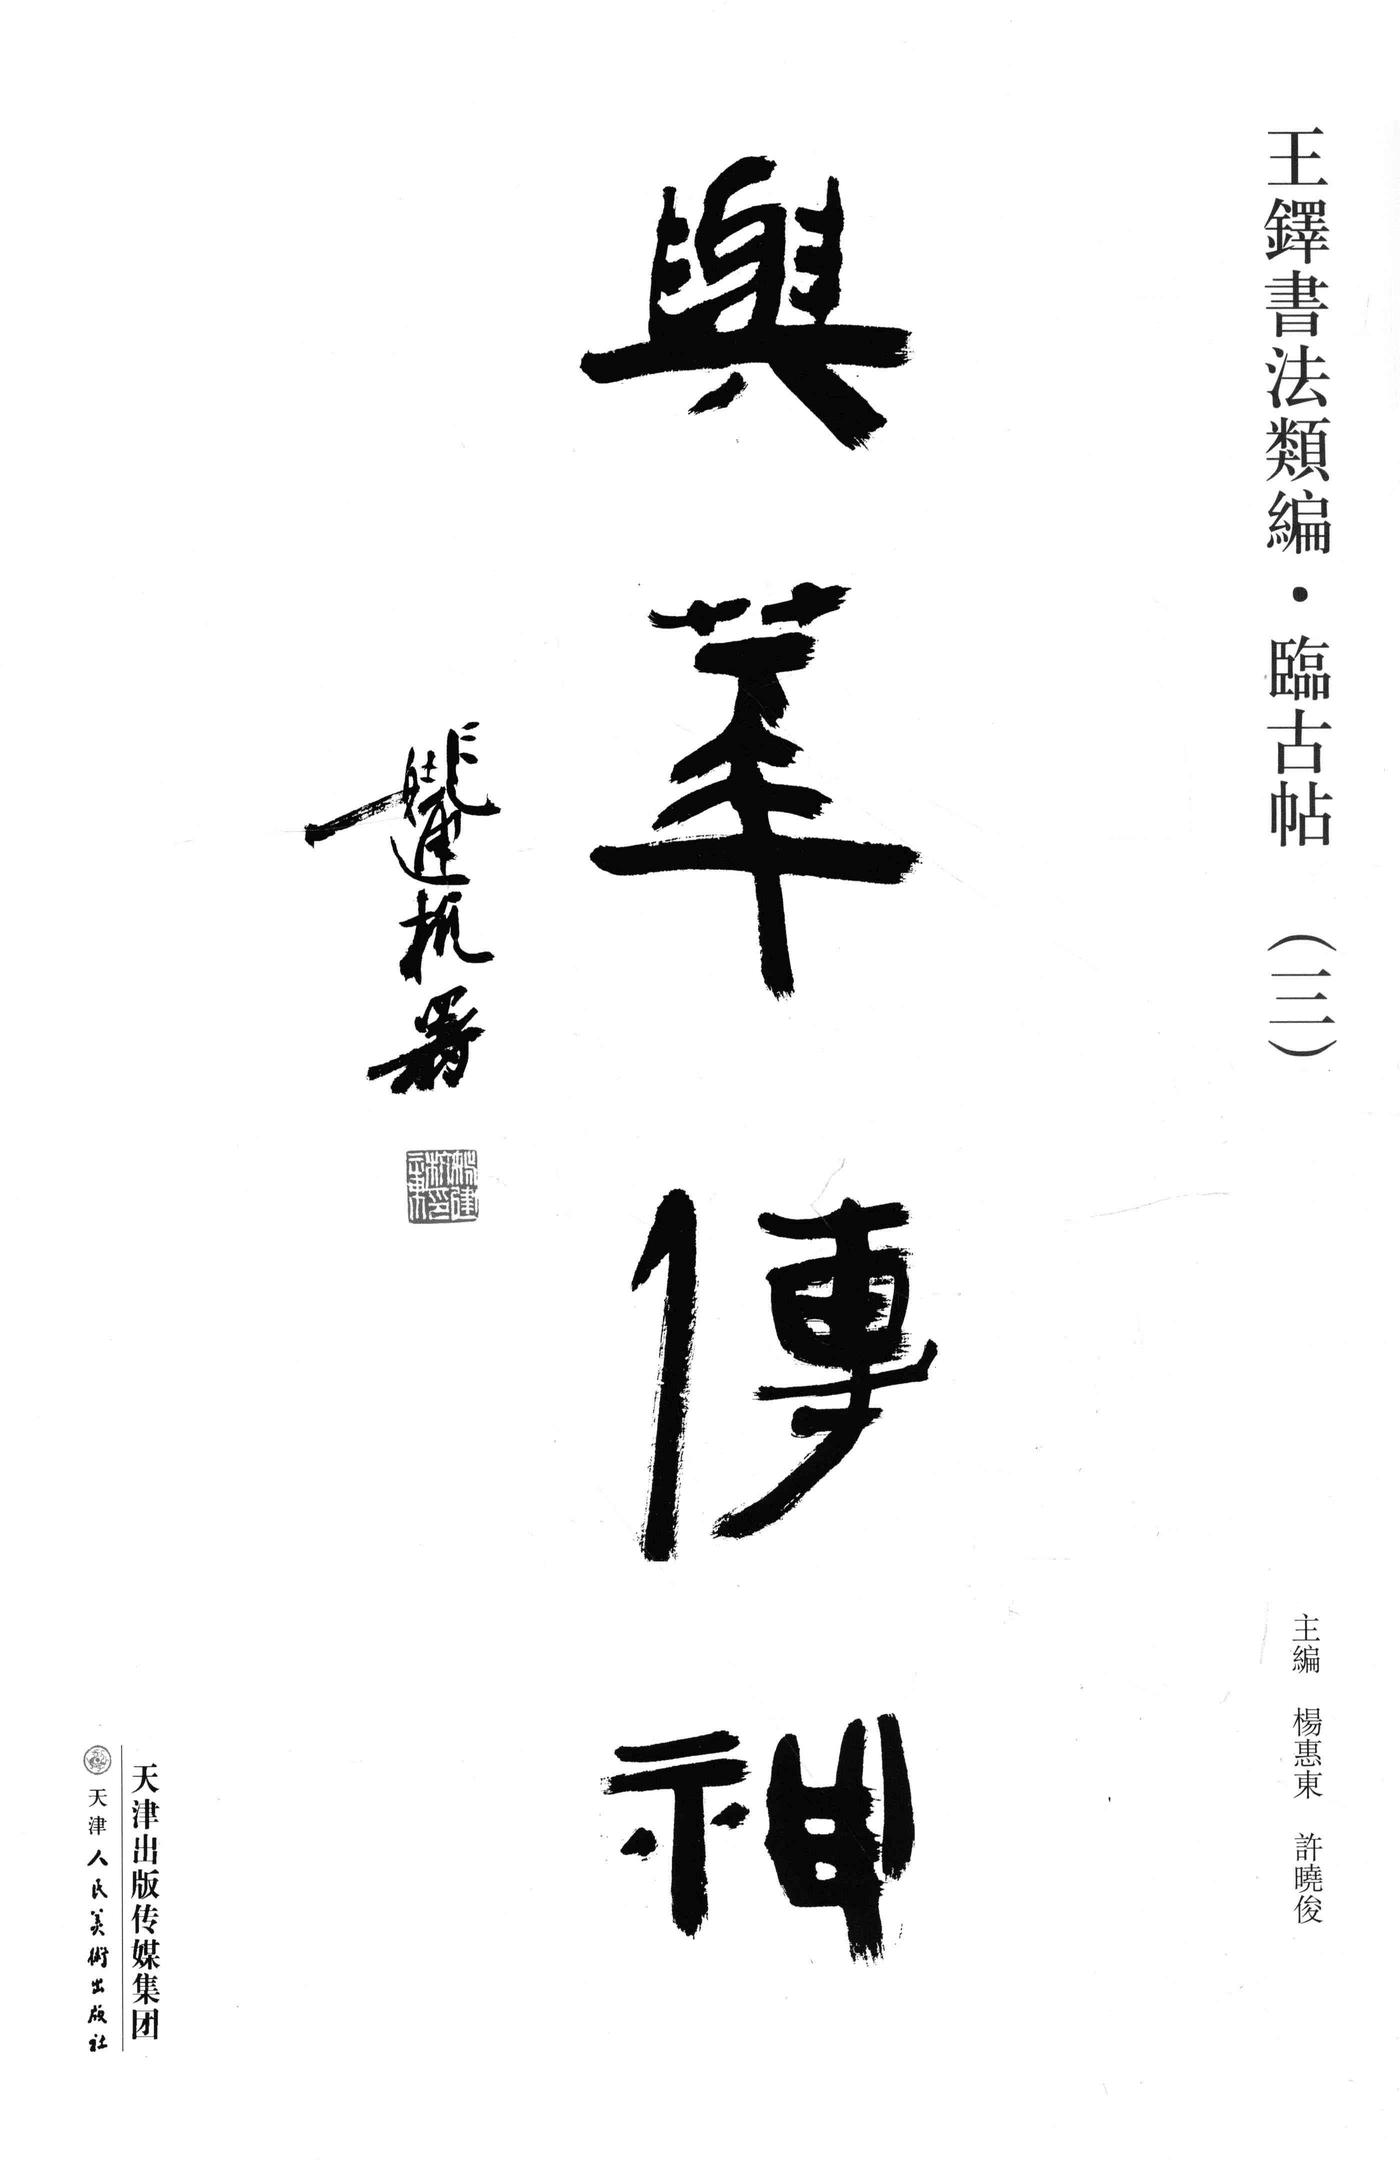 王鐸書法類編・臨古帖 (三)
主編 楊惠東 許曉俊
與萃傳神
建杭署
天津出版传媒集团
天津人民美術出版社